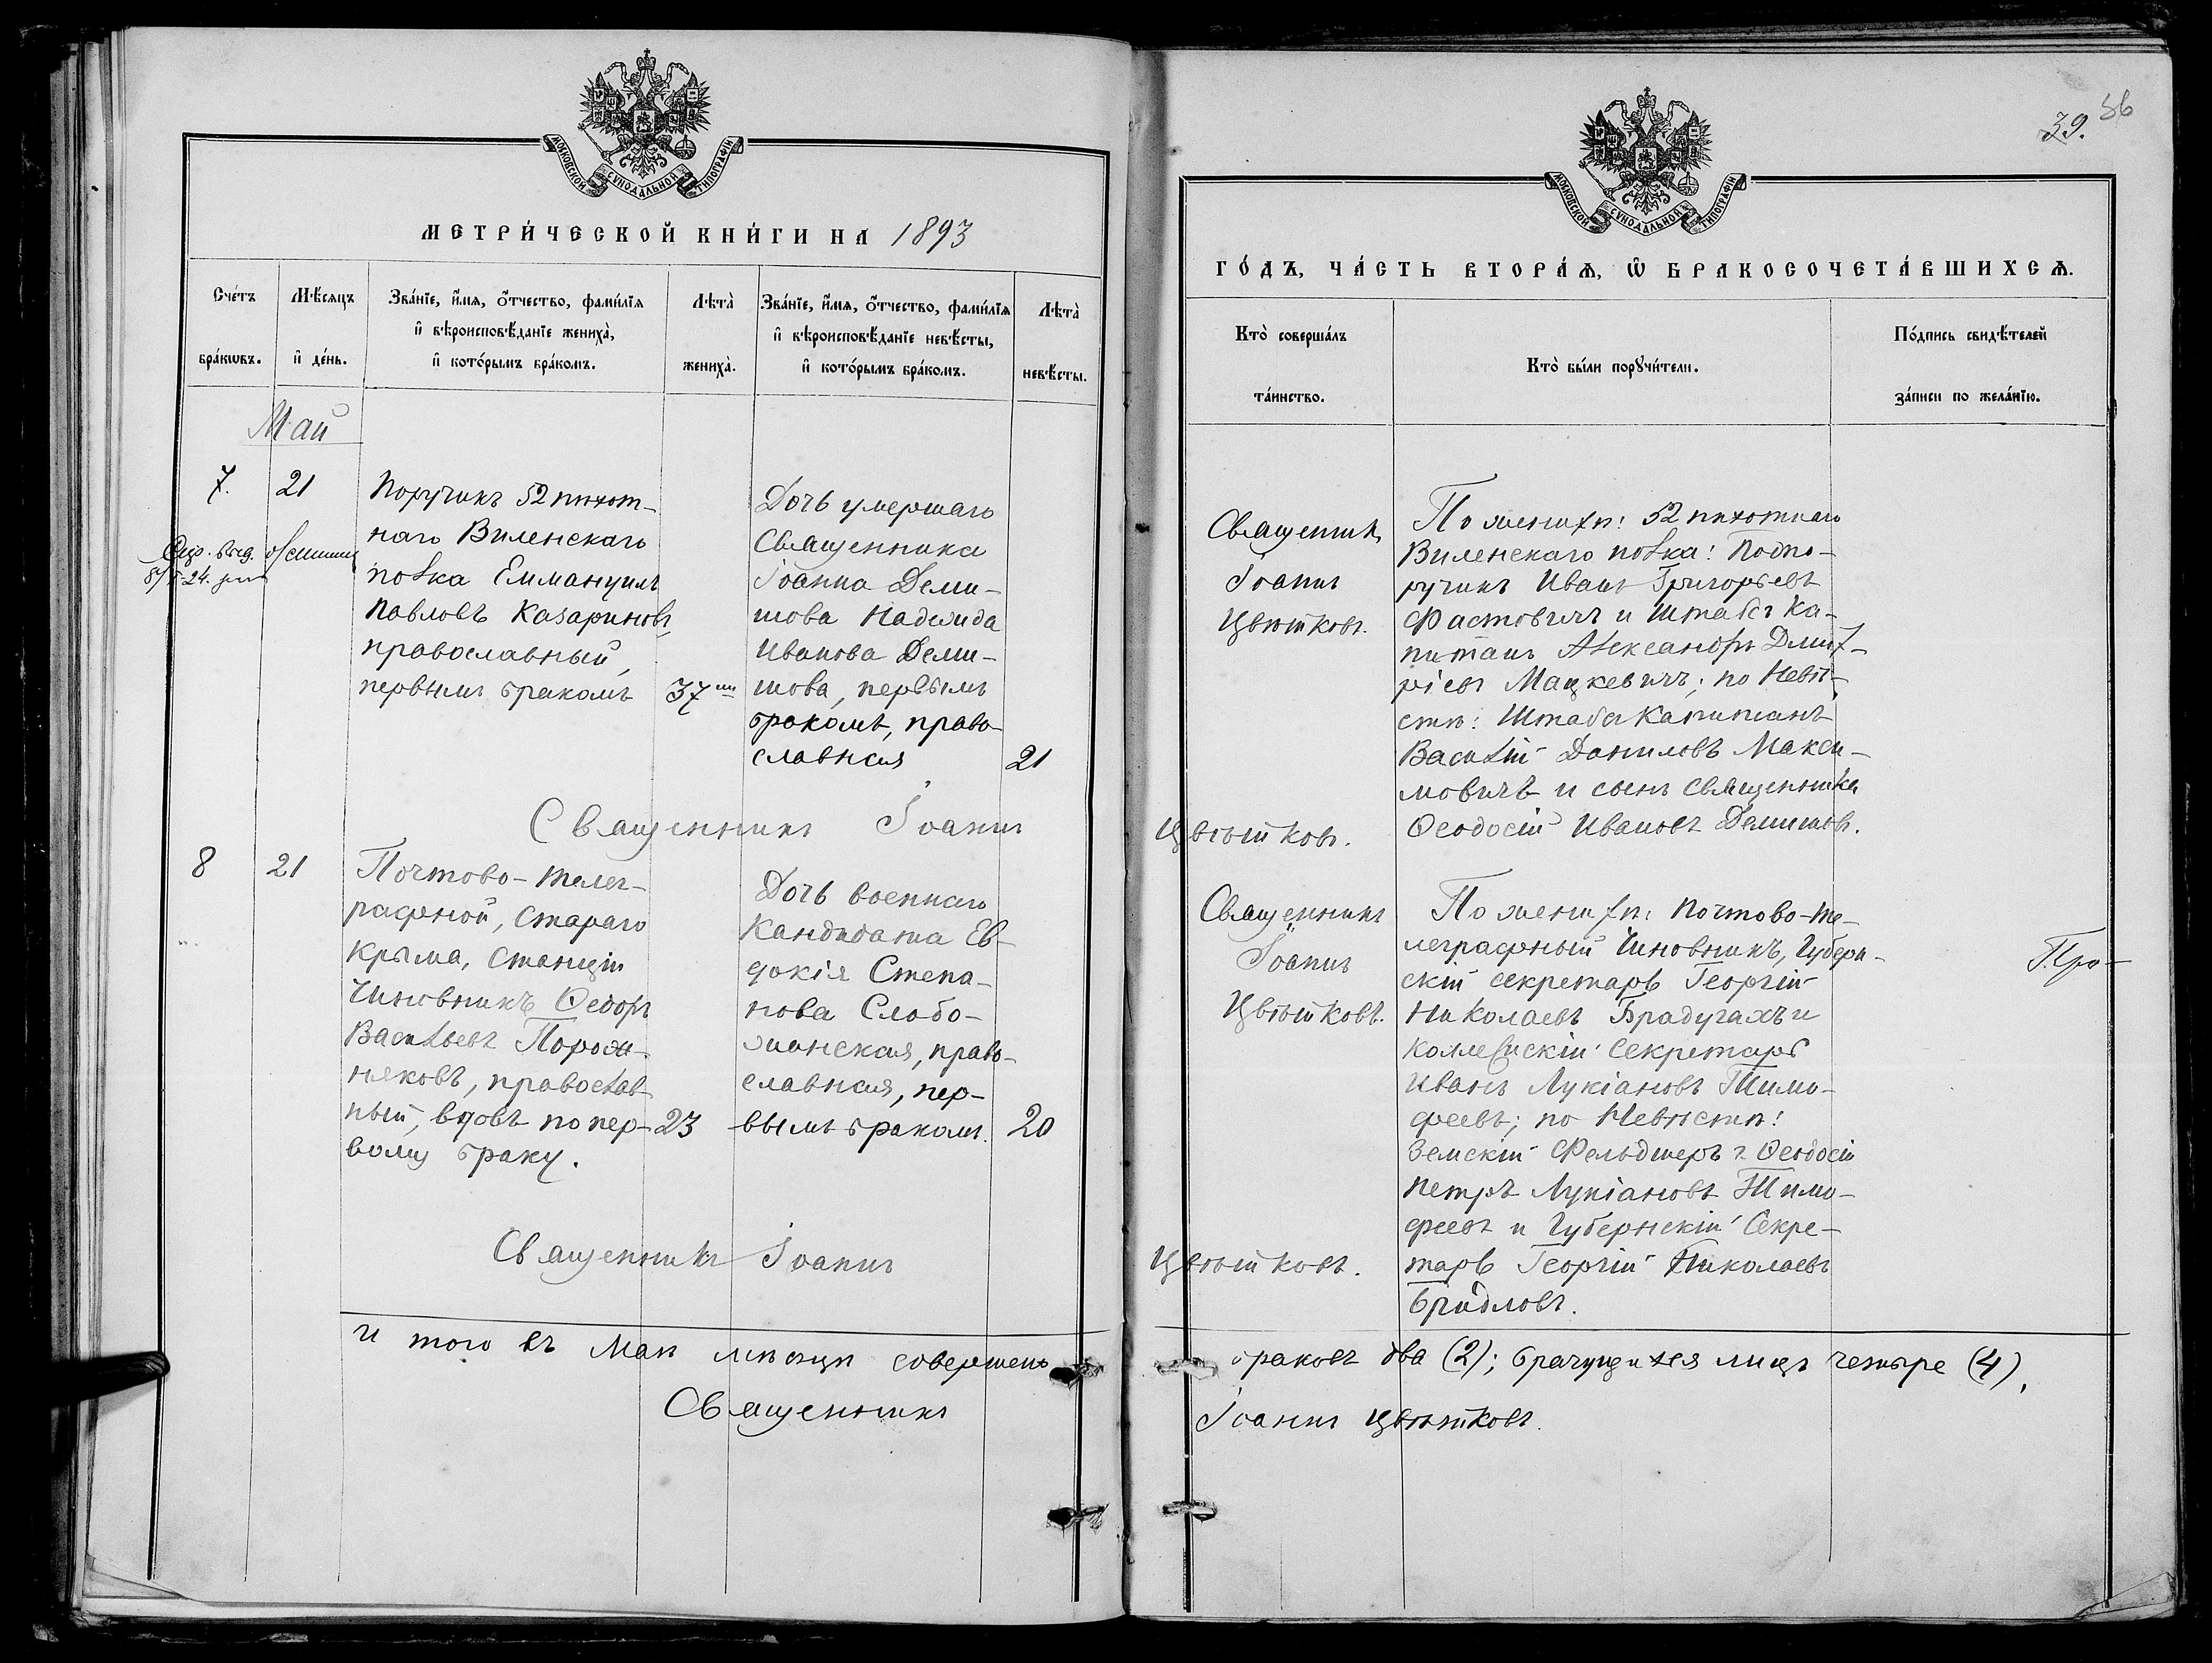 МОСКОВСКОЙ СѴНОДАЛЬНОЙ ТИПОГРАФІИ
МЕТРИ́ЧЕСКОЙ КНИ́ГИ НА 1893
Сче́тъ бра́кѡвъ.
Мѣ́сяцъ и҆ де́нь.
Зва́нїе, и҆́мѧ, ѻ҆́тчество, фами́лїѧ
и҆ вѣроисповѣ́данїе жениха̀,
и҆ кото́рымъ бра́комъ.
Лѣта̀ жениха̀.
Зва́нїе, и҆́мѧ, ѻ҆́тчество, фами́лїѧ
и҆ вѣроисповѣ́данїе невѣ́сты,
и҆ кото́рымъ бра́комъ.
Лѣта̀ невѣ́сты.
Май
7.
21
Поручикъ 52 пѣхот-
наго Виленскаго
полка Еммануилъ
Павловъ Казариновъ,
православный,
первымъ бракомъ
37
Дочь умершаго
Священника
Іоанна Деми-
шова Надежда
Иванова Деми-
шова, первымъ
бракомъ, право-
славная
21
Священникъ Іоаннъ
8
21
Почтово-телег-
рафной, Стараго
Крыма, Станціи
Чиновникъ Ѳедоръ
Васильевъ Порож-
няковъ, православ-
ный, вдовъ по пер-
вому браку.
23
Дочь военнаго
Кандидата Ев-
докія Степа-
нова Слобо-
жанская, право-
славная, пер-
вымъ бракомъ.
20
Священникъ Іоаннъ
И того въ Маѣ мѣсяцѣ совершено
Священникъ
39.
36
МОСКОВСКОЙ СѴНОДАЛЬНОЙ ТИПОГРАФІИ
ГО́ДЪ, ЧА́СТЬ ВТОРА́Ѧ, Ѽ БРАКОСОЧЕТА́ВШИХСѦ.
Кто̀ соверша́лъ
та́инство.
Кто̀ бы́ли порꙋчи́тели.
По́дпись свидѣ́телей
за́писи по жела́нїю.
Священникъ
Іоаннъ
Цвѣтковъ.
По женихѣ: 52 пѣхотнаго
Виленскаго полка: Подпо-
ручикъ Иванъ Григорьевъ
Фастовичъ и Штабсъ Ка-
питанъ Александръ Дмит-
ріевъ Мацкевичъ; по Невѣ-
стѣ: Штабсъ Капитанъ
Василій Даниловъ Макси-
мовичъ и сынъ священника
Ѳеодосій Ивановъ Демишовъ.
Цвѣтковъ.
Священникъ
Іоаннъ
Цвѣтковъ.
По женихѣ: Почтово-те-
леграфный Чиновникъ, Губерн-
скій секретарь Георгій
Николаевъ Брадучахъ и
Коллежскій Секретарь
Иванъ Лукіановъ Тимо-
феевъ; по Невѣстѣ:
Земскій Фельдшеръ г. Ѳеодосіи
Петръ Лукіановъ Тимо-
феевъ и Губернскій Секре-
тарь Георгій Николаевъ
Цвѣтковъ.
браковъ два (2); брачущихся лицъ четыре (4).
Іоаннъ Цвѣтковъ.